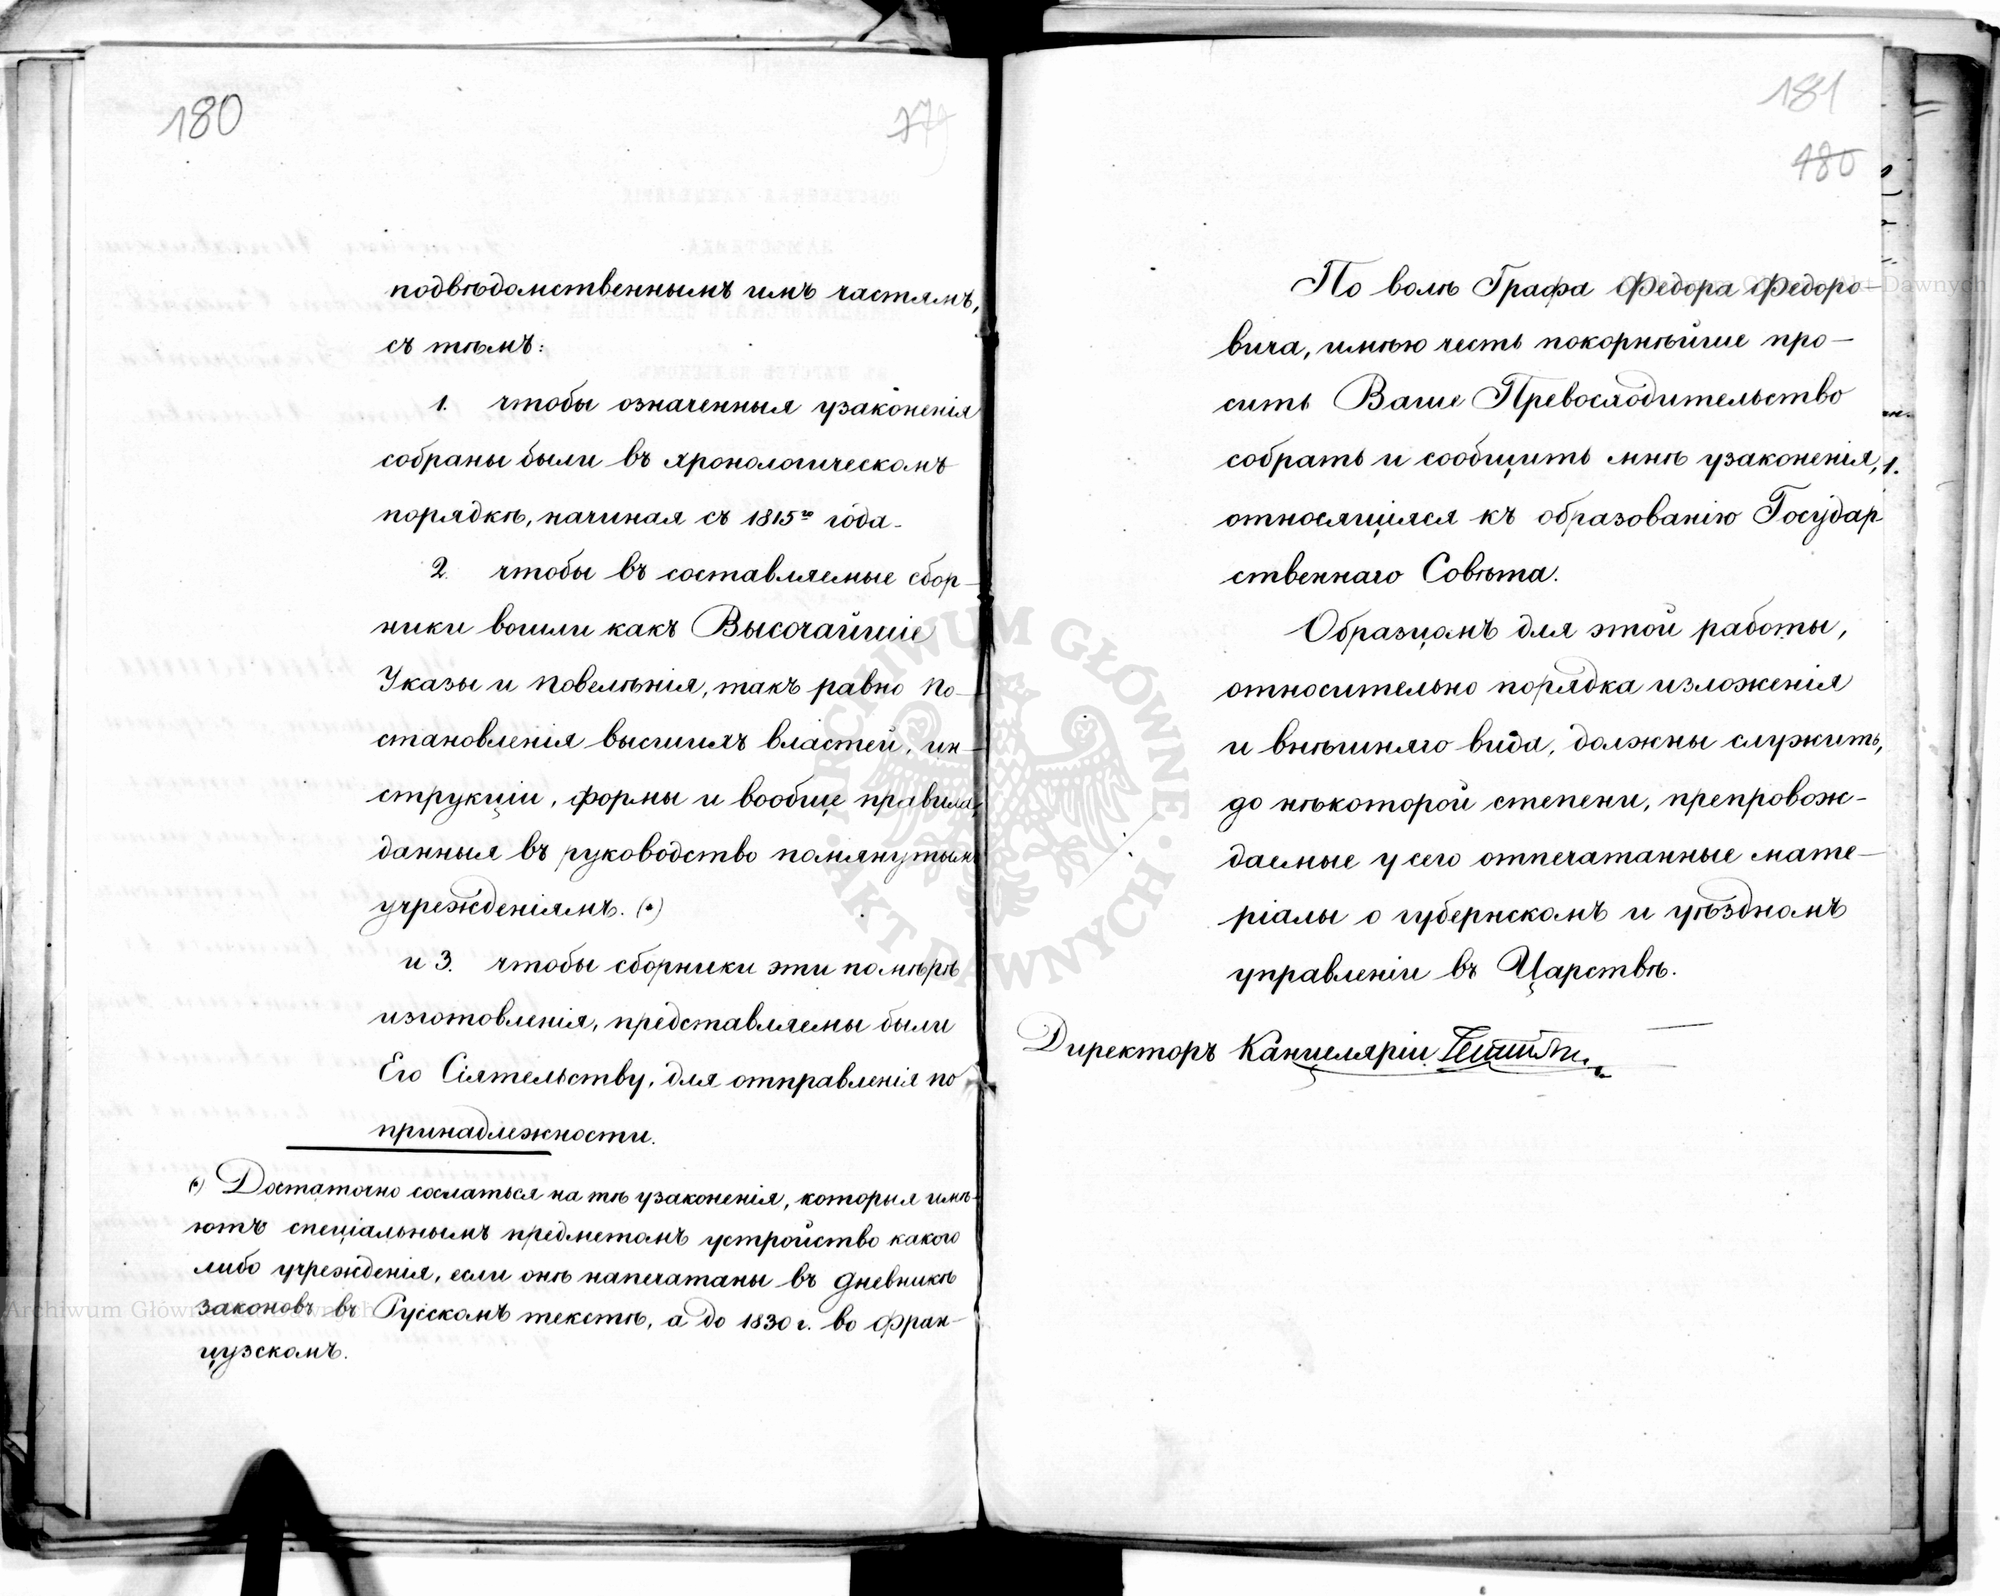 180
подвѣдомственнымъ имъ частямъ,
съ тѣмъ:
1. чтобы означенныя узаконенія
собраны были въ хронологическомъ
порядкѣ, начиная съ 1815го года.
2. чтобы въ составляемые сбор-
ники вошли какъ Высочайшіе
Указы и повелѣнія, такъ равно по-
становленія высшихъ властей, ин-
струкціи, формы и вообще правила,
данныя въ руководство помянутымъ
учрежденіямъ. (*)
и 3. чтобы сборники эти по мѣрѣ
изготовленія, представляемы были
Его Сіятельству, для отправленія по
принадлежности.
(*) Достаточно сослаться на тѣ узаконенія, которыя имѣ-
ютъ спеціальнымъ предметомъ устройство какого
либо учрежденія, если онѣ напечатаны въ дневникѣ
законовъ въ Русскомъ текстѣ, а до 1830 г. во фран-
цузскомъ.
181
480
По волѣ Графа Федора Федоро-
вича, имѣю честь покорнѣйше про-
сить Ваше Превосходительство
собрать и сообщить мнѣ узаконенія,
относящіяся къ образованію Государ
ственнаго Совѣта.
Образцомъ для этой работы,
относительно порядка изложенія
и внѣшняго вида, должны служить,
до нѣкоторой степени, препровож-
даемые у сего отпечатанные мате-
ріалы о губернскомъ и уѣздномъ
управленіи въ Царствѣ.
Директоръ Канцеляріи
ARCHIWUM GŁÓWNE AKT DAWNYCH
Archiwum Główne Akt Dawnych